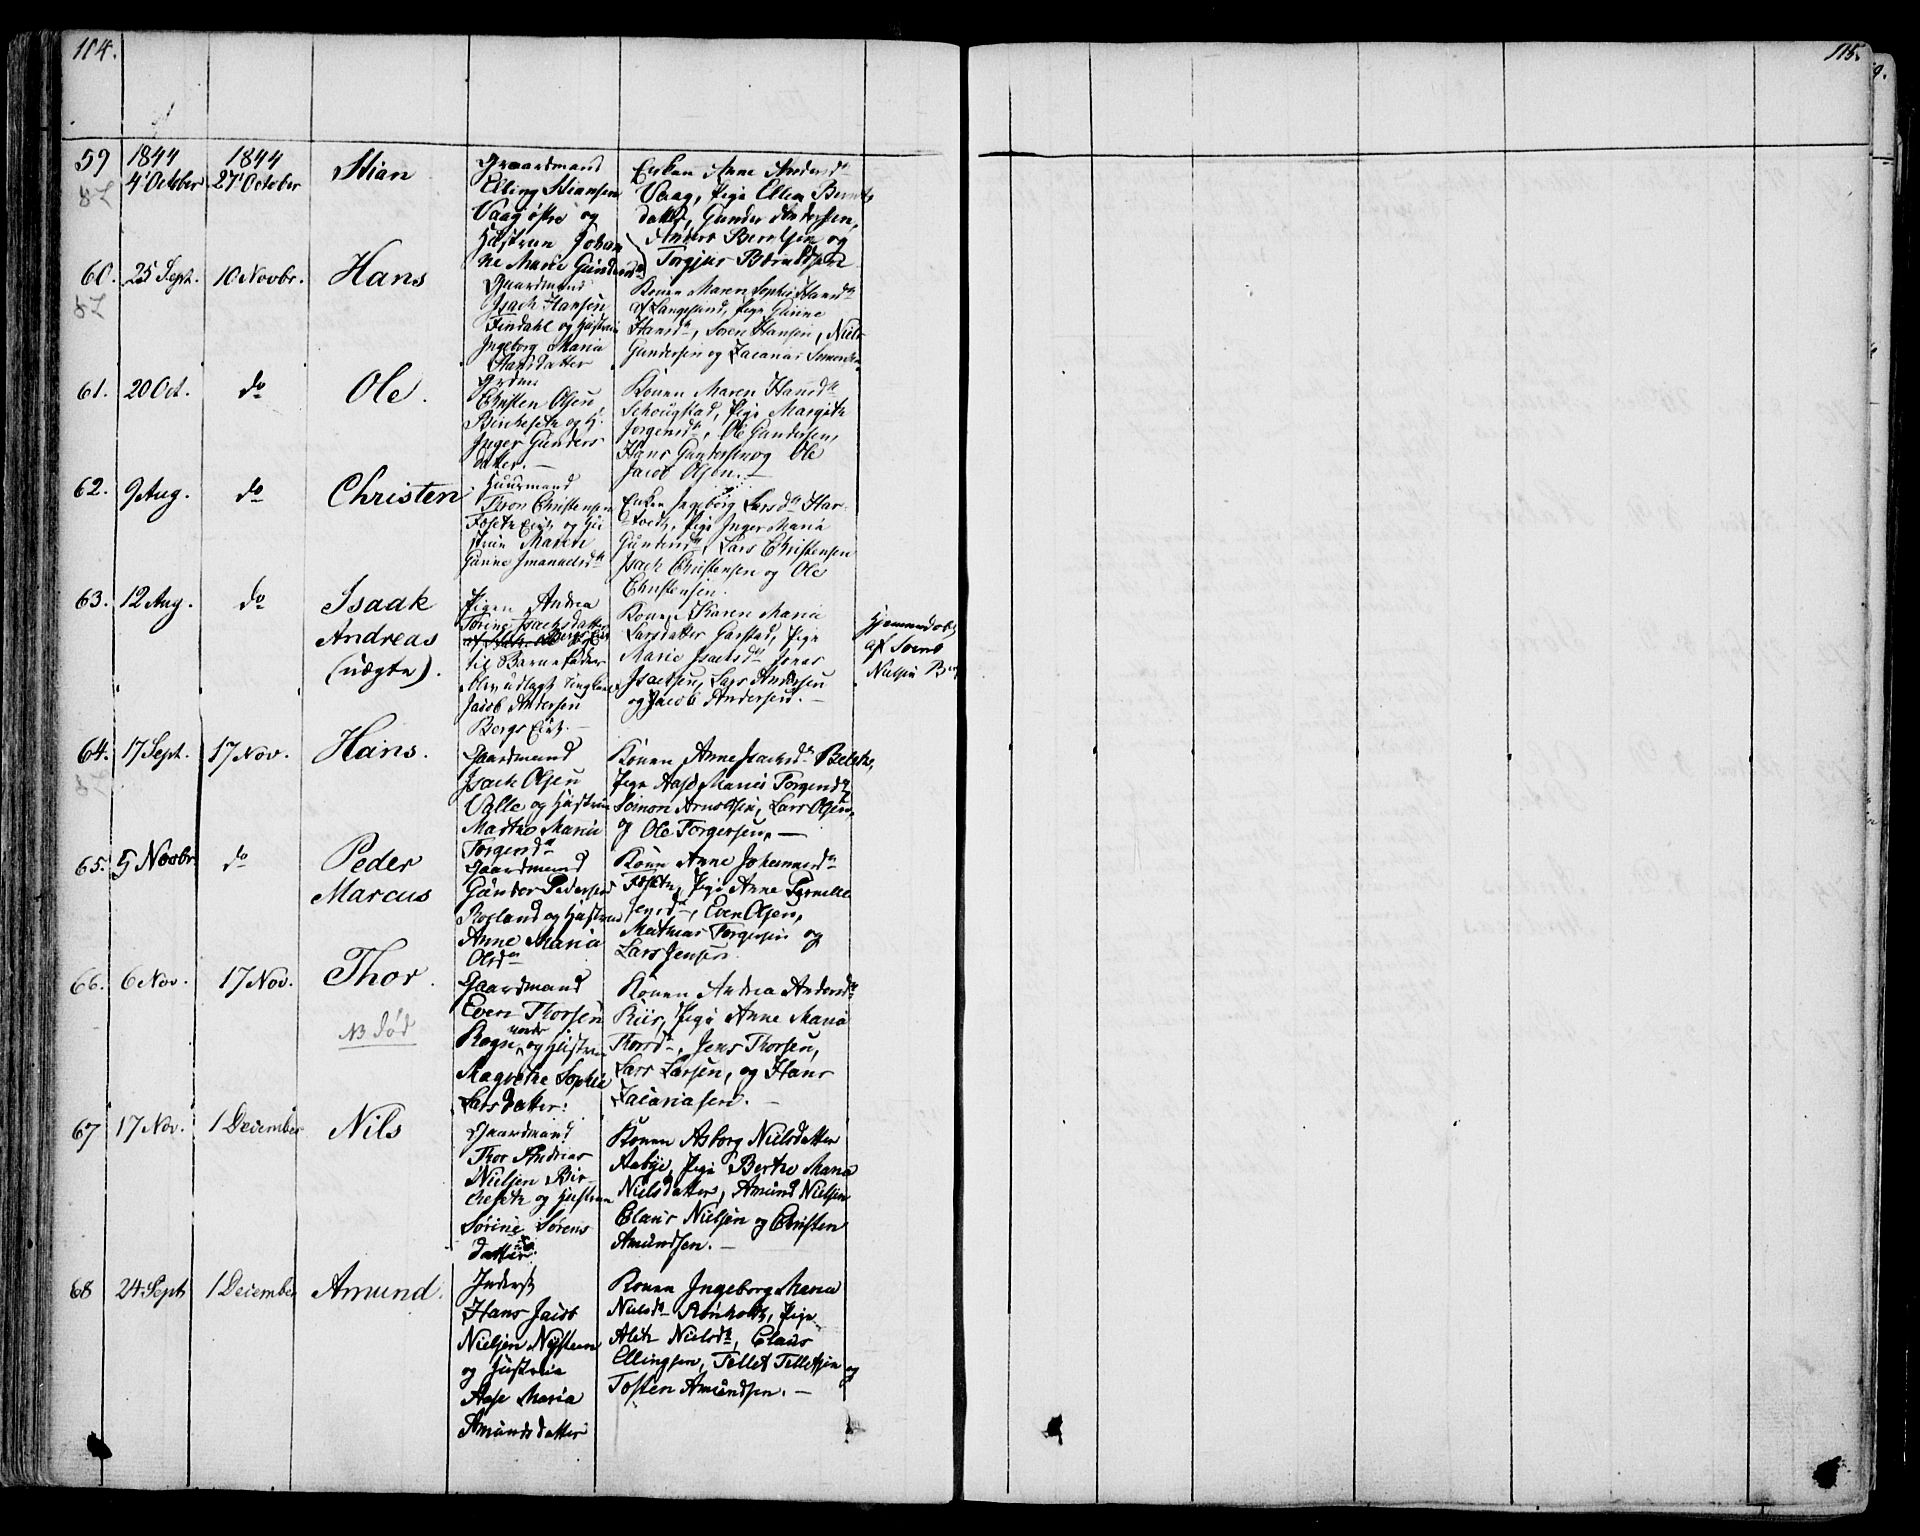 114.
115.
59 1844 4' October 1844 27' October Stian
Gaardmand
Elling Stiansen
Vaag østre og
Hustrue Johan
ne Marie Gundersd.
Enken Anne Andersd.
Vaag, Pige Ellen Bernts
datter, Gunder Andersen,
Anders Berntsen og
Torgjus Berntsen
60. 25 Sept. 10 Novbr. Hans
Gaardmand
Isach Hansen
Findahl og Hustrue
Ingeborg Maria
Hansdatter
Konen Maren Sophie Hansd.
af Langesund, Pige Gunne
Hansd., Søren Hansen, Niels
Gundersen og Zacarias Simonsen
61. 20 Oct. do Ole.
Christen Olsen
Birkeseth og H.
Inger Gunders
datter. —
Konen Maren Hansd.
Schougstad, Pige Margith
Jørgensd., Ole Gundersen,
Hans Gundersen og Ole
Jacob Olsen. —
62. 9 Aug. do Christen
Huusmand
Thron Christensen
Foseth Eiet og Hu
strue Maren
Gunne Imanuelsd.
Enken Ingeborg Larsd. Har
Pige Inger Maria
Gundersd., Lars Christensen
Isach Christensen og Ole
Christensen.
63. 12 Aug. do Isaak
Andreas
(uægte).
Pigen Andrea
Torine Isachsdatter
til Barnefader
blev udlagt Ungkarl
Jacob Andersen
Bergs Eiet. —
Konen Karen Maria
Larsdatter Garstad, Pige
Marie Isachsd., Jonas
Isachsen, Lars Andersen
og Jacob Andersen. —
Hjemmedøbt
af Svend
Nielsen
64. 17 Sept. 17 Nov. Hans.
Gaardmand
Isach Olsen
Valle og Hustrue
Marthe Marie
Torgersd.
Konen Anne Isachsd.
Pige Aase Marie Torgersd.
Simon Arnoldsen, Lars Olsen,
og Ole Torgersen. —
65. 5 Novbr. do Peder
Marcus
Gaardmand
Gunder Pedersen
Rosland og Hustrue
Anne Maria
Olsd.
Konen Anne Johannesd.
Foseth, Pige Anne Pernelle
Jensd., Even Olsen,
Mathias Torgersen og
Lars Jensen.
66. 6 Nov. 17 Nov. Thor.
NB død
Gaardmand
Even Thorsen
Rogn nordr og Hustrue
Magrethe Sophie
Larsdatter.
Konen Andrea Andersd.
Riis, Pige Anne Maria
Thorsd., Jens Thorsen,
Lars Larsen, og Hans
Zacariasen. —
67 17 Nov. 1 December Nils
Gaardmand
Thor Andreas
Nielsen Bir-
keseth og Hustrue
Sørine Sørens
datter.
Konen Asborg Nielsdatter
Aabye, Pige Berthe Maria
Nielsdatter, Amund Nielsen
Claus Nielsen og Christen
Amundsen. —
68 24 Sept 1 December Amund.
Inderst
Hans Jacob
Nielsen Nysteen
og Hustrue
Aase Maria
Amundsdatter
Konen Ingeborg Maria
Nielsd. Rønholt, Pige
Aleth Nielsd., Claus
Ellingsen, Tellef Tellefsen og
Tosten Amundsen. —